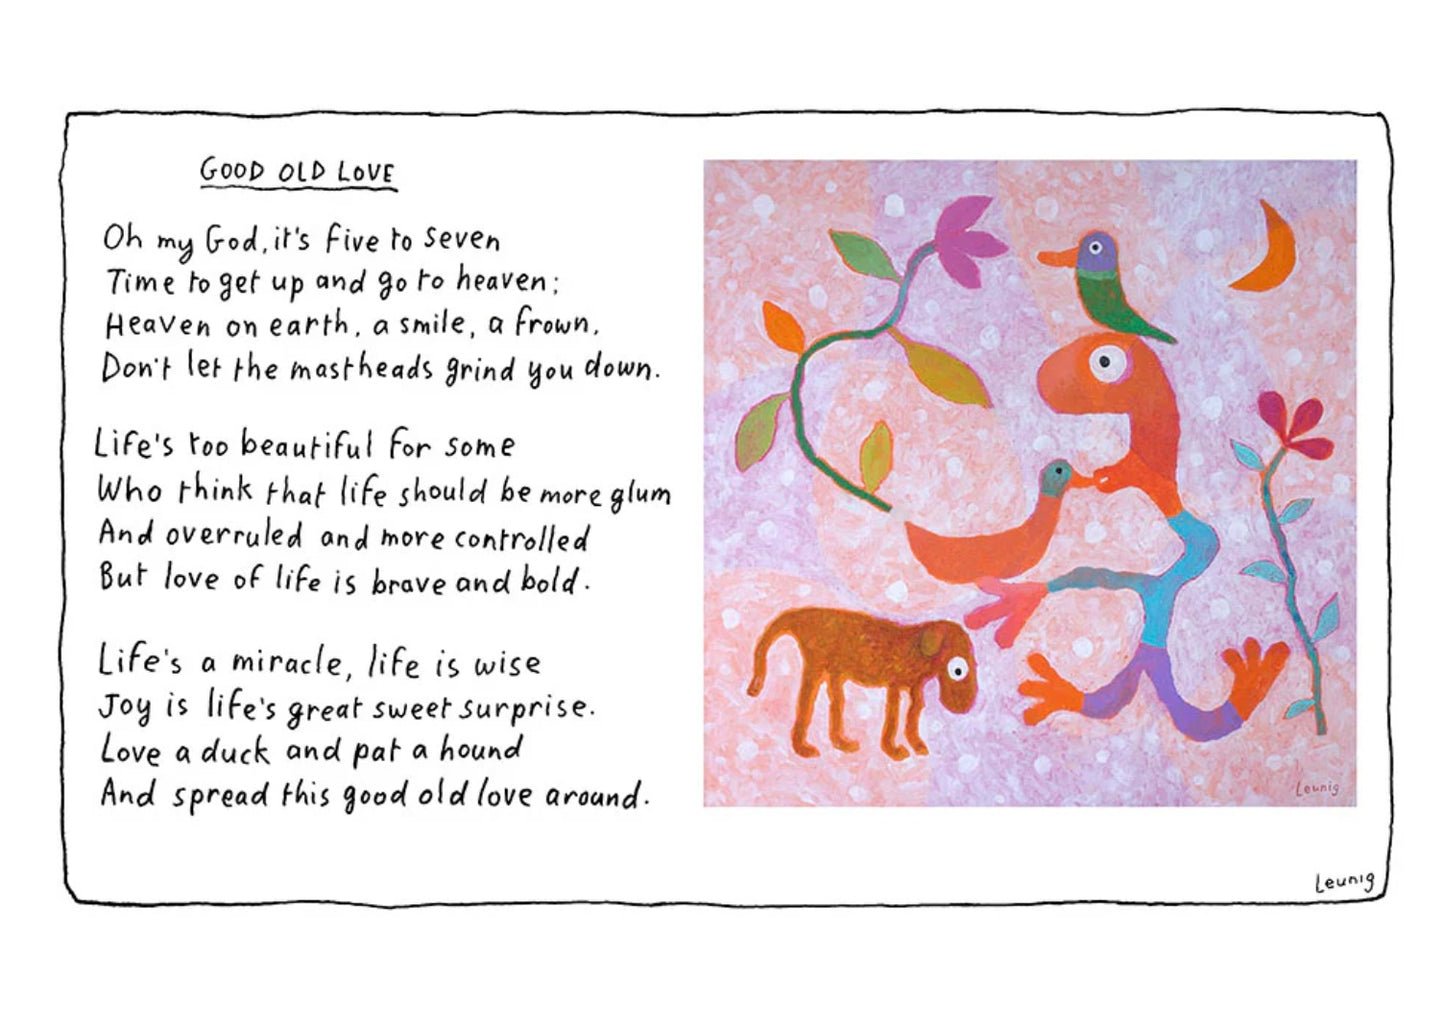 GOOD OLD LOVE
Oh my God, it's five to seven
Time to get up and go to heaven;
Heaven on earth, a smile, a frown,
Don't let the mastheads grind you down.
Life's too beautiful for some
Who think that life should be more glum
And overruled and more controlled
But love of life is brave and bold.
Life's a miracle, life is wise
Joy is life's great sweet surprise.
Love a duck and pat a hound
And spread this good old love around.
Leunig
Leunig